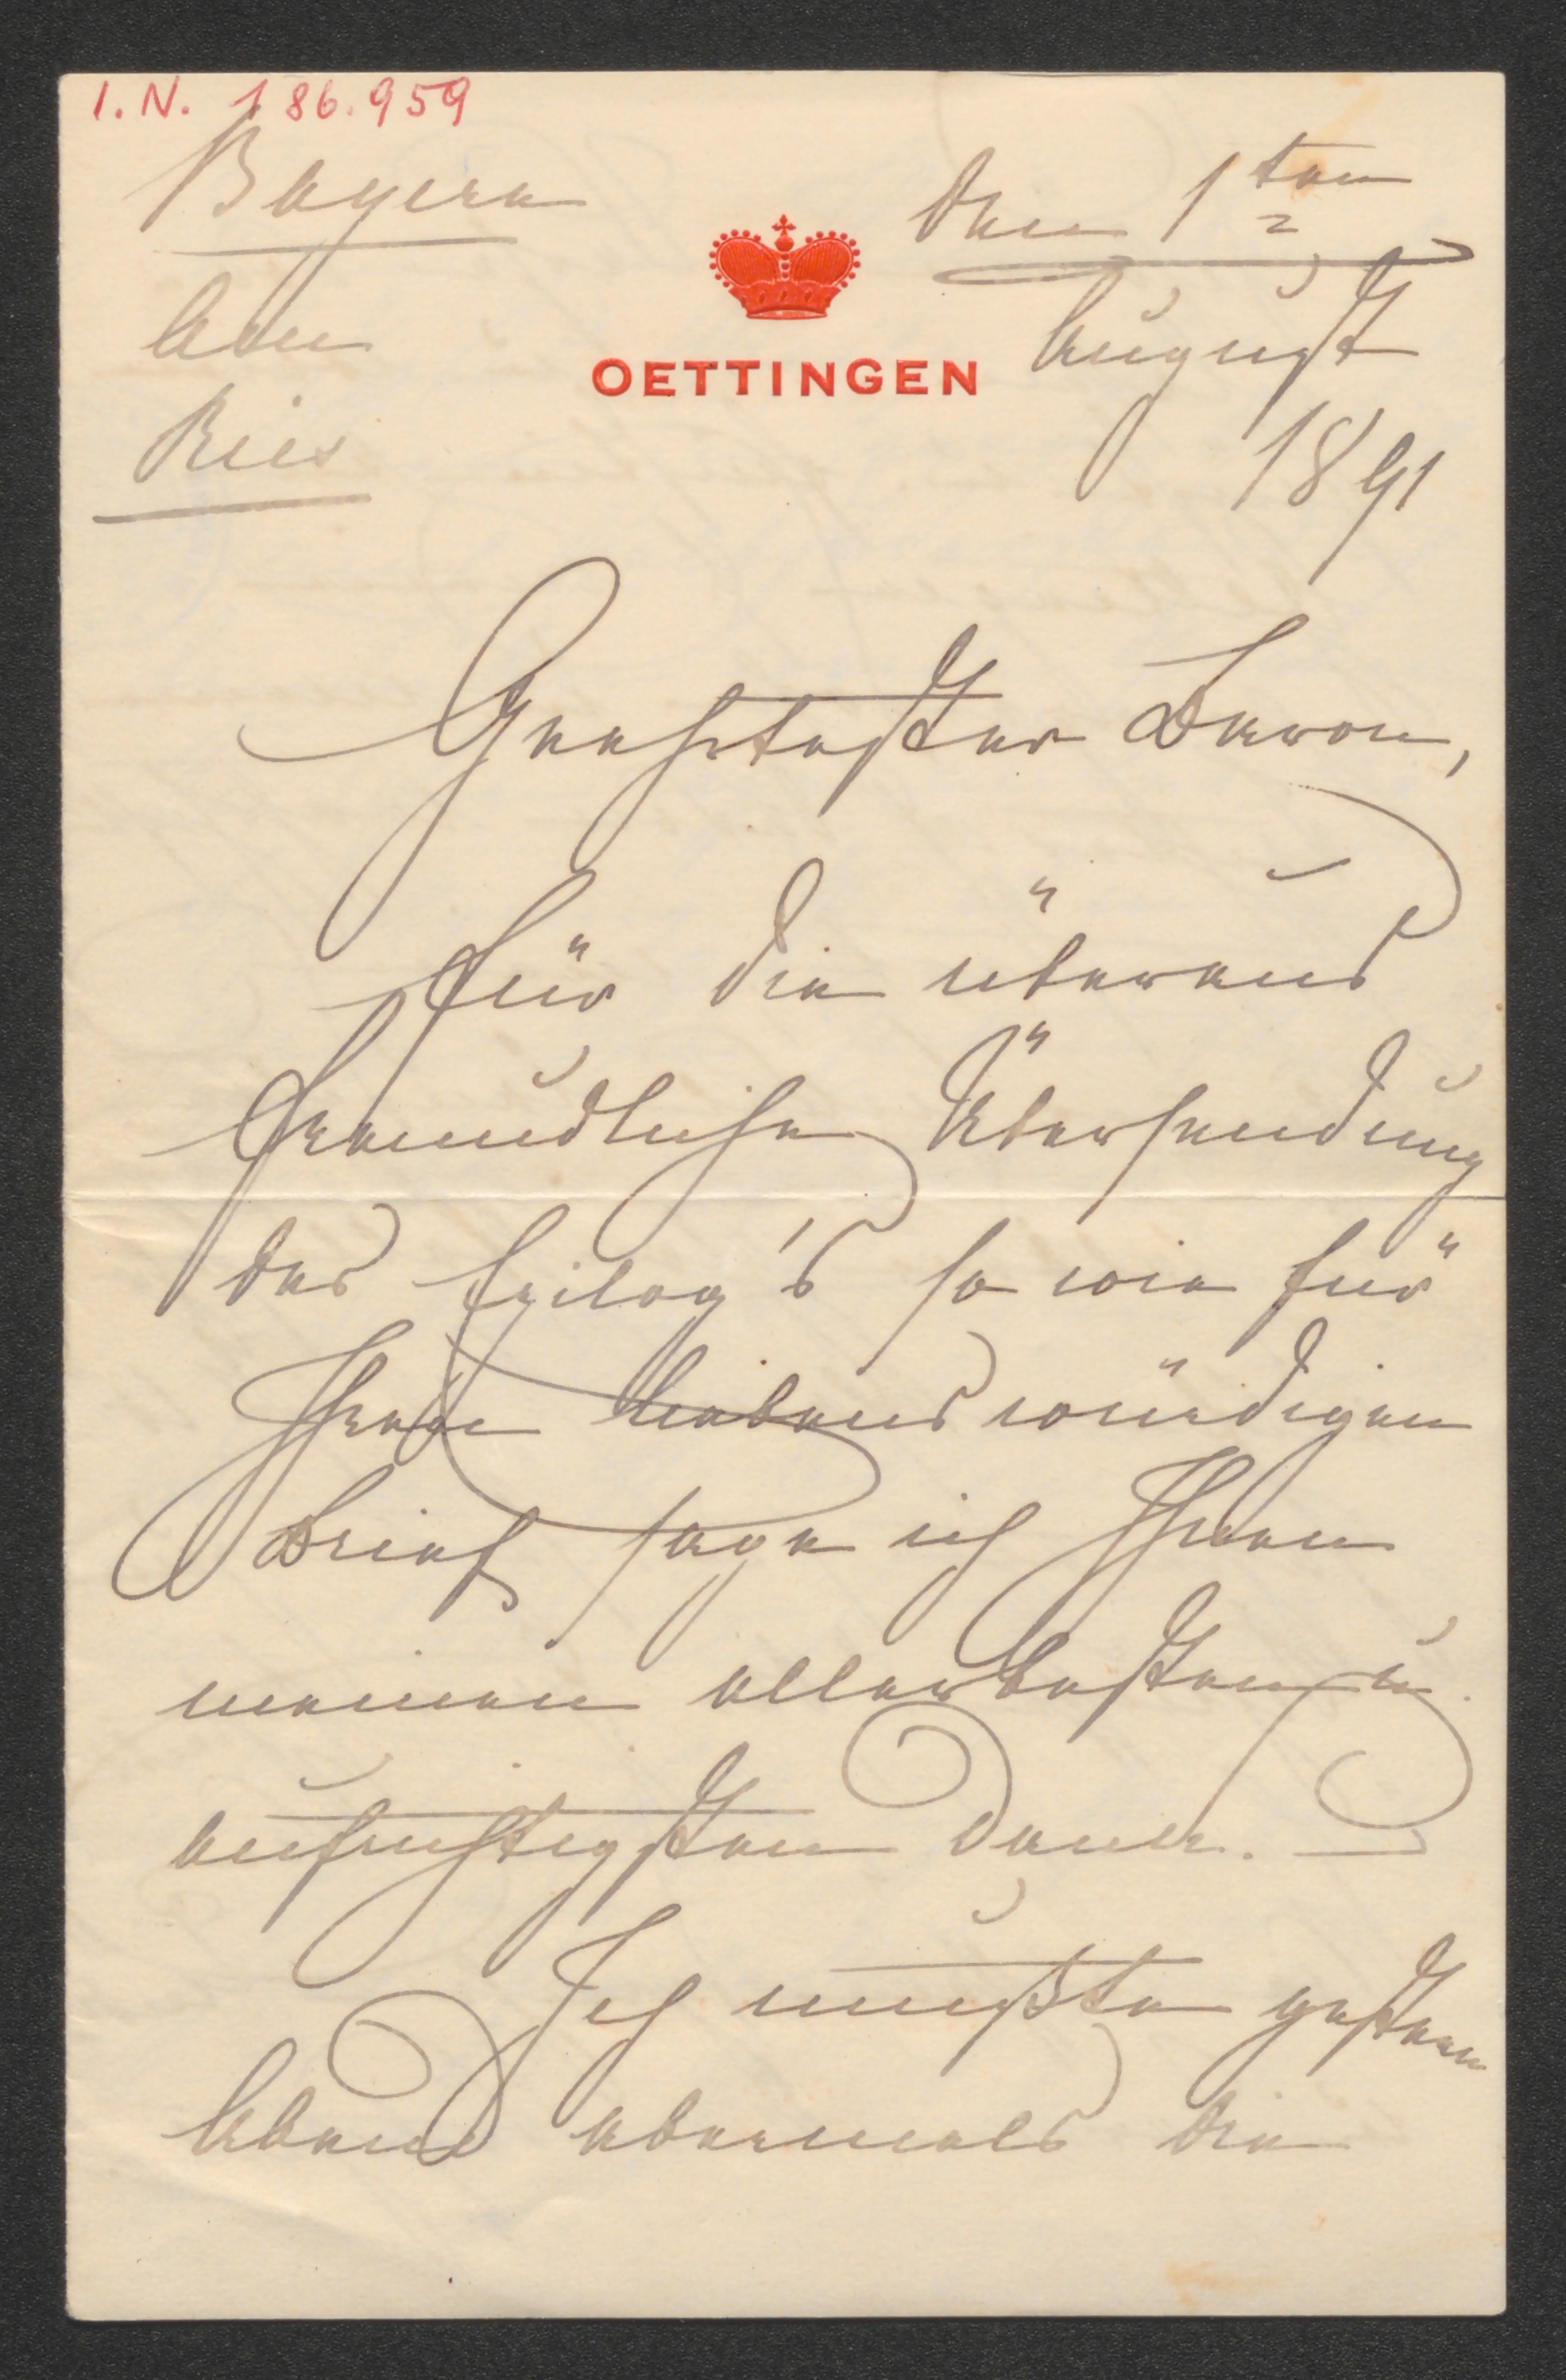 I.N. 186.959
Bayern
am
Ries
OETTINGEN
den 1ten
August
1891
Geehrtester Baron,
Für die überaus
freundliche Übersendung
des Epilog's so wie für
Ihren liebenswürdigen
Brief sage ich Ihnen
meinen allerbesten u.
aufrichtigsten Dank. —
Ich mußte gestern
Abend abermals die